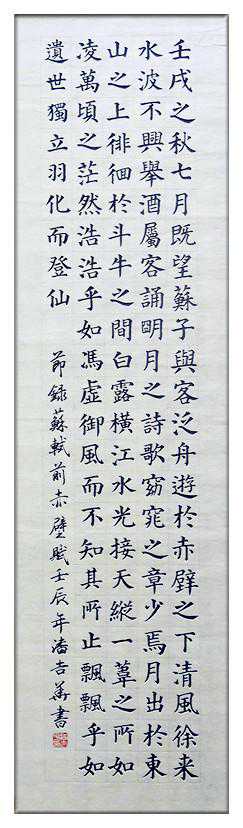 壬戌之秋七月既望蘇子與客泛舟遊於赤壁之下清風徐来
水波不興舉酒屬客誦明月之詩歌窈窕之章少焉月出於東
山之上徘徊於斗牛之間白露橫江水光接天縱一葦之所如
凌萬頃之茫然浩浩乎如馮虛御風而不知其所止飄飄乎如
遺世獨立羽化而登仙
節錄蘇軾前赤壁賦壬辰年潘吉華書